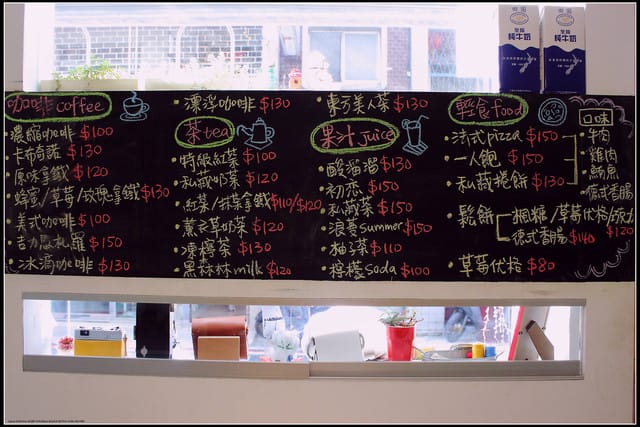 純牛奶
純牛奶
咖啡 coffee
濃縮咖啡 $100
卡布奇諾 $130
原味拿鐵 $120
蜂蜜/草莓/玫瑰拿鐵 $130
美式咖啡 $100
吉力馬札羅 $150
冰滴咖啡 $130
漂浮咖啡 $130
茶 tea
特級紅茶 $100
私藏奶茶 $120
紅茶/抹茶拿鐵 $110/$120
薰衣草奶茶 $120
凍檸茶 $130
黑森林milk $120
東方美人茶 $130
果汁 juice
酸溜溜 $130
初恋 $150
私藏茶 $150
浪漫summer $150
柚子茶 $110
檸檬soda $100
輕食food
法式pizza $150
一人飽 $150
私藏捲餅 $130
鬆餅
楓糖/草莓优格/
$120
德式香腸 $140
草莓优格 $80
口味
牛肉
雞肉
鮪魚
德式香腸